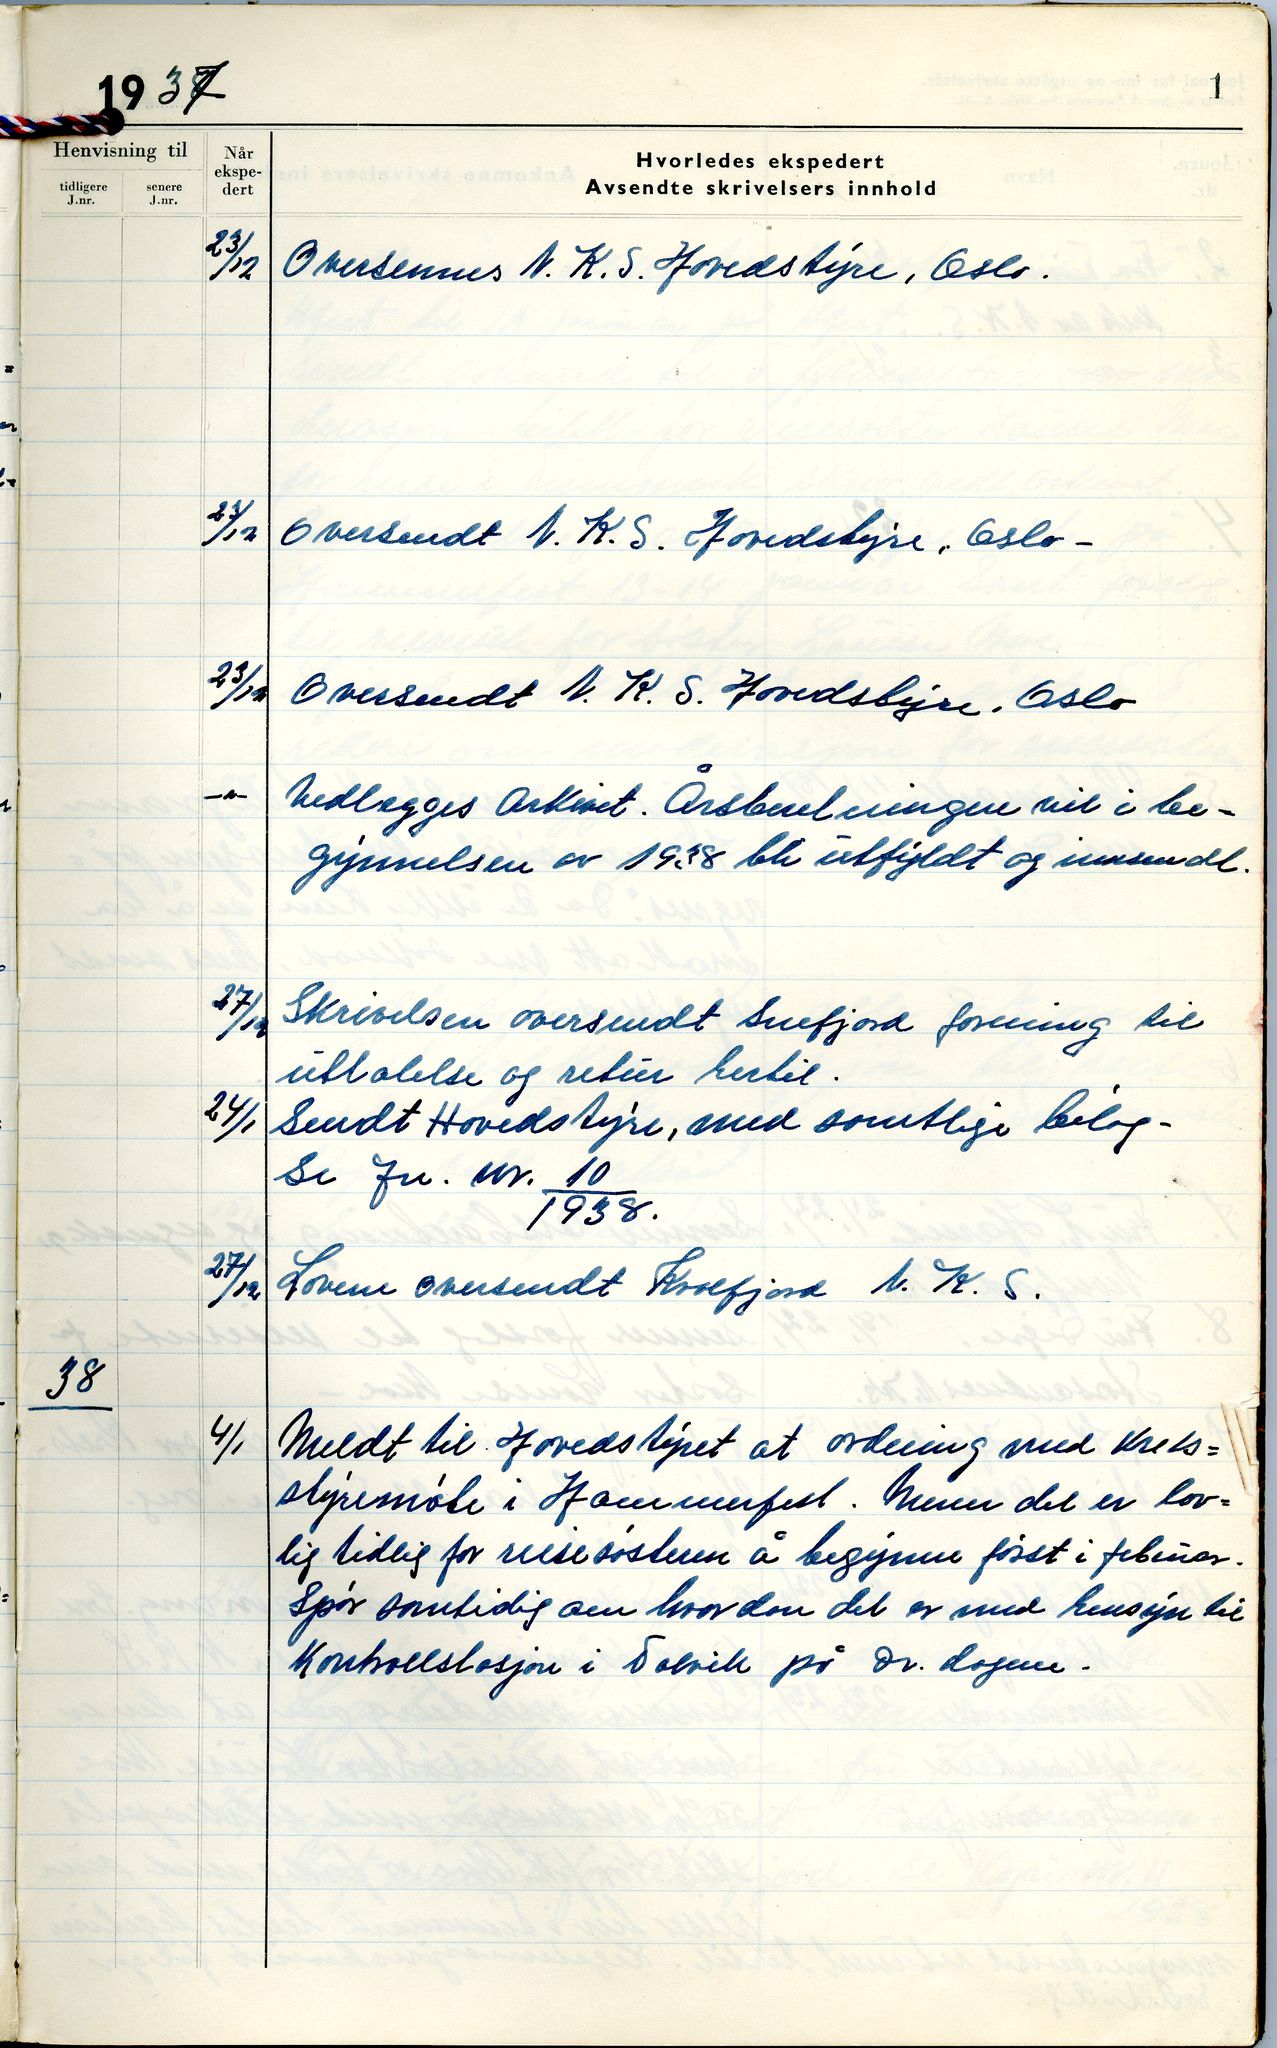 1937
1
Henvisning til
tidligere J.nr.
senere J.nr.
Når ekspe-dert
Hvorledes ekspedert
Avsendte skrivelsers innhold
23/12 Oversennes N. K. S. Hovedstyre, Oslo.
23/12 Oversendt N. K. S. Hovedstyre, Oslo -
23/12 Oversendt N. K. S. Hovedstyre, Oslo
-"- Vedlegges Arkivet. Årsberetningen vil i be-
gynnelsen av 1938 bli utfyldt og innsendt.
27/12 Skrivelsen oversendt Snefjord forening til
uttalelse og retur hertil.
24/1 Sendt Hovedstyre, med samtlige bilag -
Se Jn. nr. 10/1938.
27/12 Lovene oversendt Kvalfjord N. K. S.
38
4/1 Meldt til Hovedstyret at ordning med krets=
styremøte i Hammerfest. Mener det er lov=
lig tidlig for reisesøsteren å begynne først i februar.
Spør samtidig om hvordan det er med hensyn til
Kontrollstasjon i Talvik på Dr. dagene.